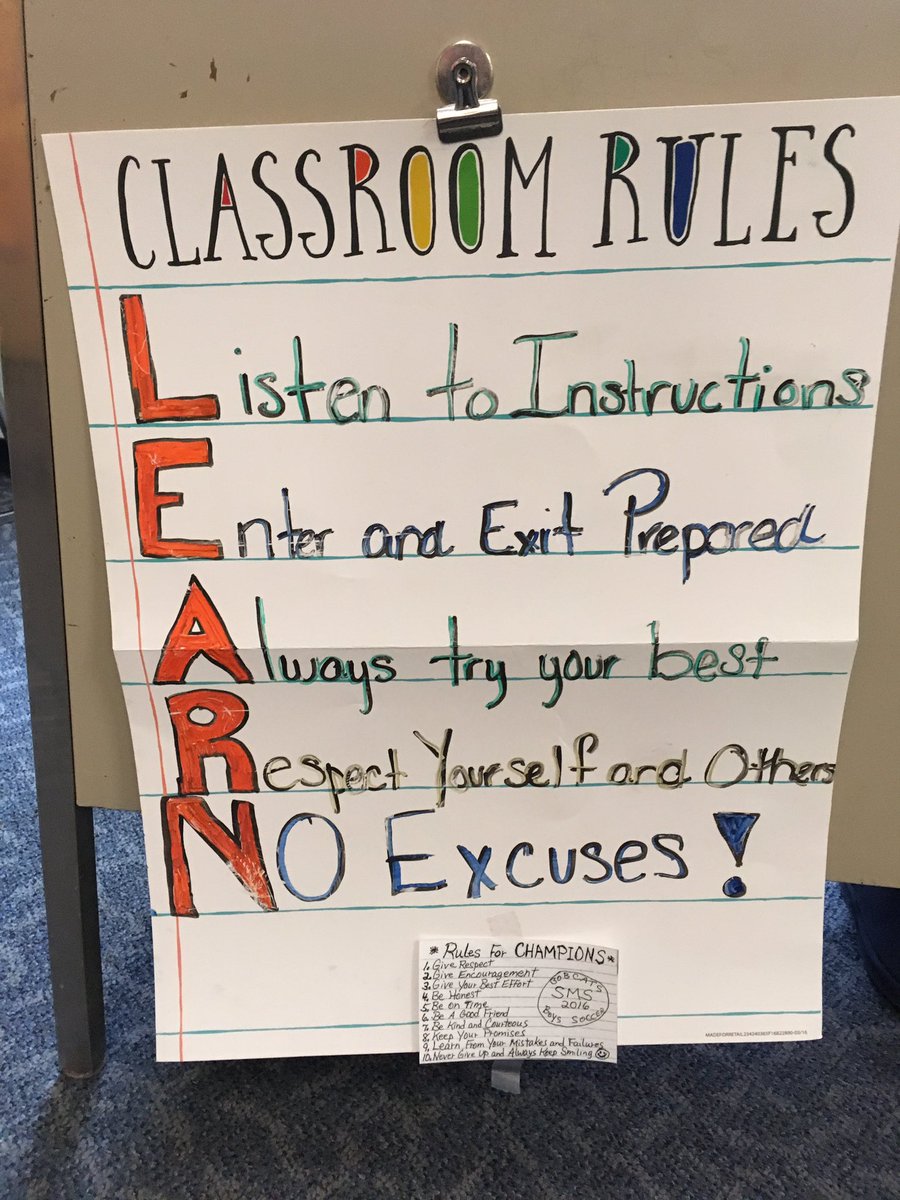 CLASSROOM RULES
Listen to Instructions
Enter and Exit Prepared
Always try your best
Respect Yourself and Others
NO Excuses!
* Rules For CHAMPIONS *
1. Give Respect
2. Give Encouragement
3. Give Your Best Effort
4. Be Honest
5. Be on Time
6. Be A Good Friend
7. Be Kind and Courteous
8. Keep Your Promises
9. Learn From Your Mistakes and Failures
10. Never Give Up and Always Keep Smiling
BOBCATS
SMS
2016
BOYS SOCCER